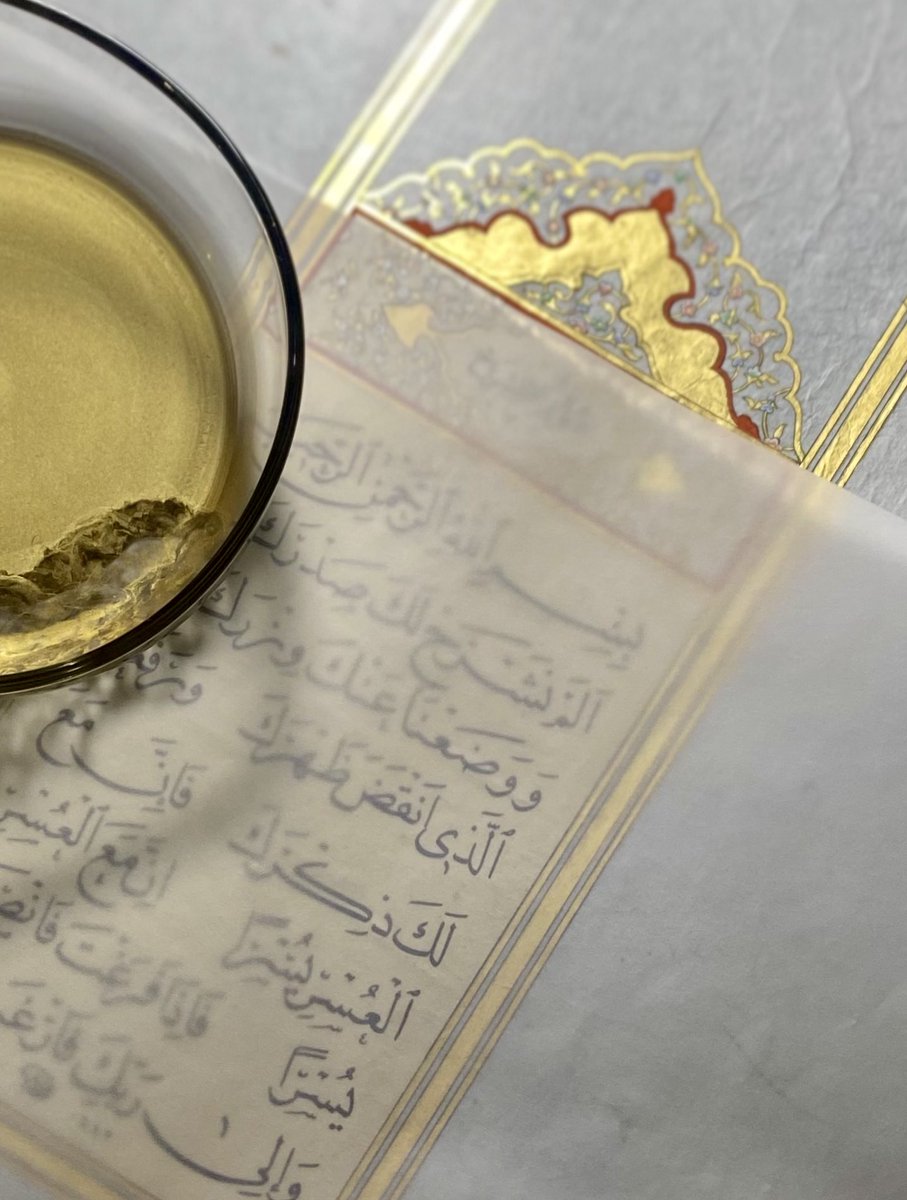 بِسْمِ اللهِ الرَّحْمٰنِ الرَّحِيمِ
اَلَمْ نَشْرَحْ لَكَ صَدْرَكَ
وَوَضَعْنَا عَنْكَ وِزْرَكَ
اَلَّذِى اَنْقَضَ ظَهْرَكَ
لَكَ ذِكْرَكَ فَاِنَّ مَعَ
الْعُسْرِ يُسْرًا اِنَّ مَعَ الْعُسْرِ
يُسْرًا فَاِذَا فَرَغْتَ فَانْصَبْ
وَاِلٰى رَبِّكَ فَارْغَبْ